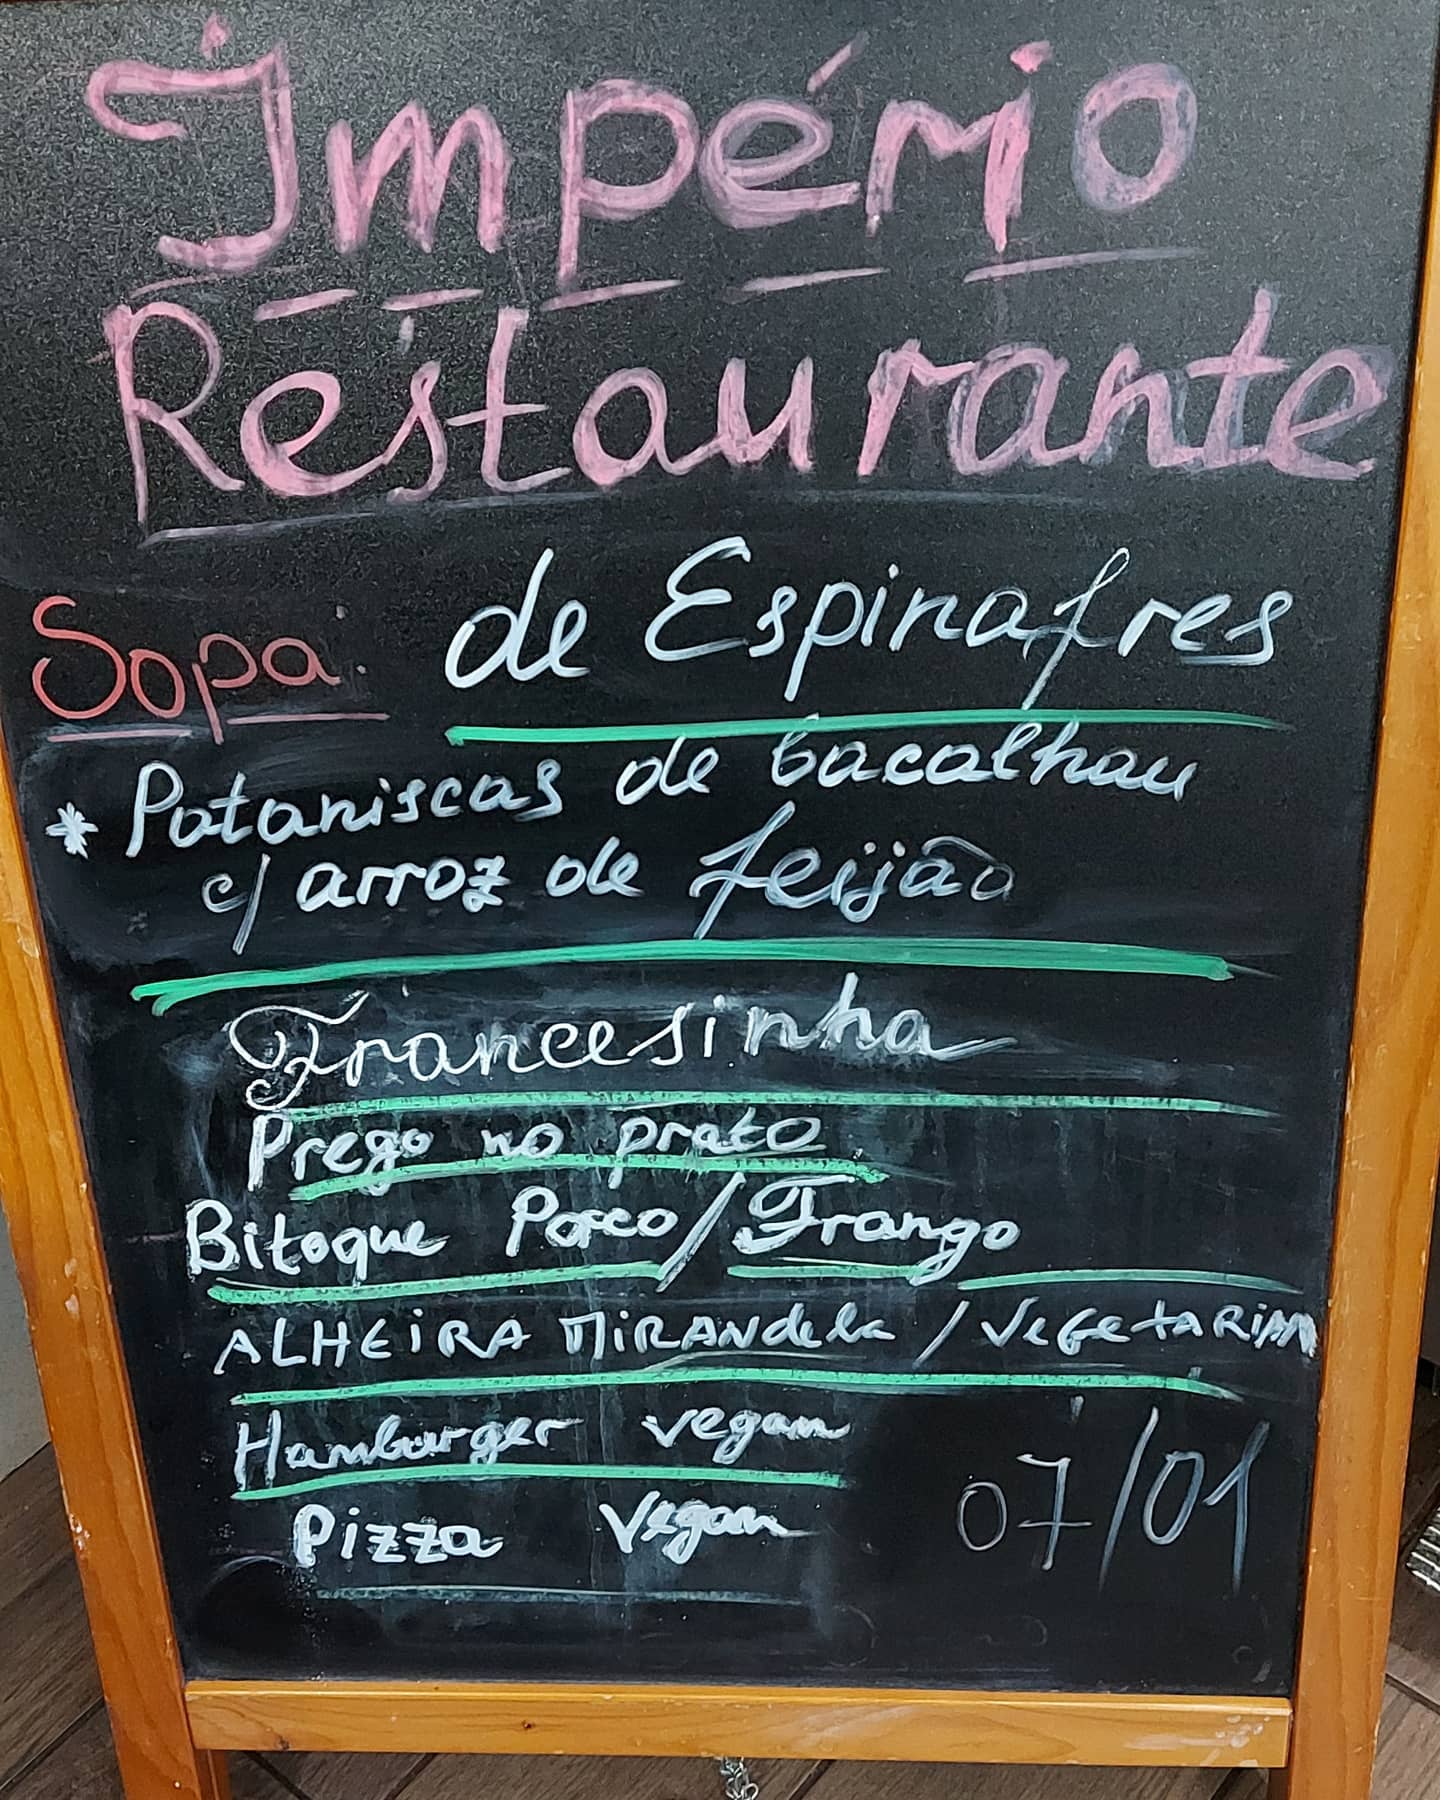 Império
Restaurante
Sopa: de Espinafres
* Pataniscas de bacalhau
c/ arroz de feijão
Francesinha
Prego no prato
Bitoque Porco/Frango
ALHEIRA MIRANdela / VEGETARIAN
Hamburger vegan
Pizza Vegan
07/01